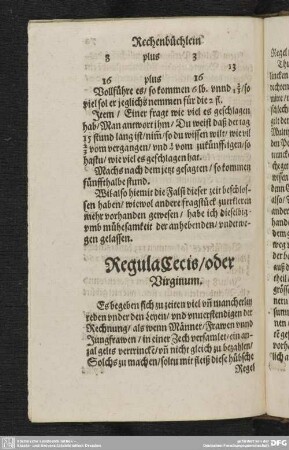 Rechenbüchlein
8 plus 3
13
16 plus 16
Vollführe es/ so kommen 6 lb. vnnd 1 3/8/ so
viel sol er jeglichs nemmen für die 2 fl.
Item/ Einer fragt wie viel es geschlagen
hab/ Man antwort jhm/ Du weist daß der tag
15 stund lang ist/ nim̃/ so du wissen wilt/ wie vil
vom vergangen/ vnd vom zukünfftigen/ so
hastu/ wie viel es geschlagen hat.
Machs nach dem jetz gesagten/ so kommen
fünffthalbe stund.
Wil also hiemit die Falsi dieser zeit beschlos-
sen haben/ wiewol andere fragstück zuerklern
mehr vorhanden gewesen/ habe ich dieselbigē
vmb mühesamkeit der anhebenden/ vnderwe-
gen gelassen.
Regula Cecis/ oder
Virginum.
Es begeben sich zu zeiten viel vñ mancherley
reden vnder den Leyen/ vnd vnuerstendigen der
Rechnung/ als wenn Männer/ Frawen vnnd
Jungfrawen/ in einer Zech versamlet/ ein an-
zal gelts vertrinckē/ vñ nicht gleich zu bezahlen/
Solchs zu machen/ soltu mit fleiß diese hübsche
Regel